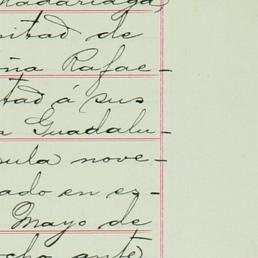 Madariaga,
mitad de
ña Rafae-
tad á sus
a Guadalu-
sula nove-
ado en es-
Mayo de
ocho ante